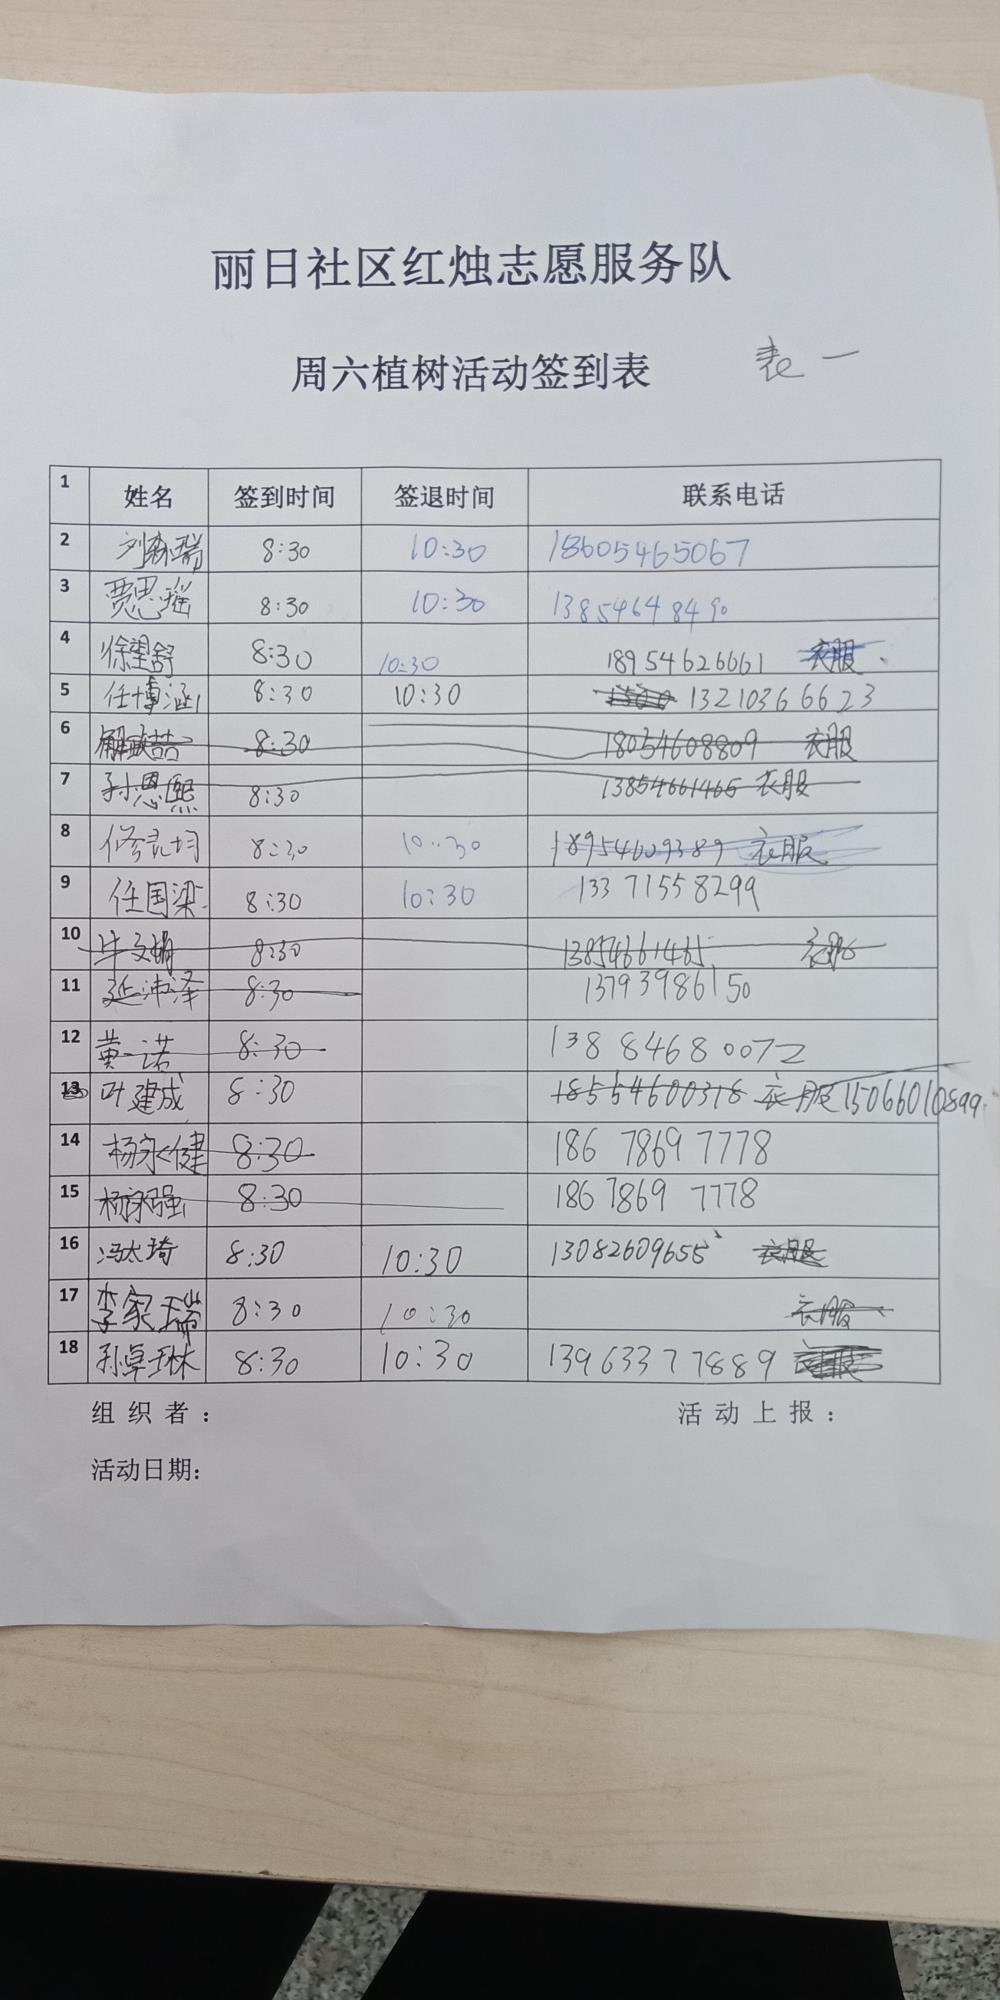 丽日社区红烛志愿服务队
周六植树活动签到表 表一
1 姓名 签到时间 签退时间 联系电话
2 刘森瑞 8:30 10:30 18605465067
3 贾思瑶 8:30 10:30 13854648490
4 徐望舒 8:30 10:30 18954626661 衣服
5 任博涵 8:30 10:30 13210366623
6 8:30 18054608809 衣服
7 孙恩熙 8:30 13854661465 衣服
8 修灵均 8:30 10:30 18954609389 衣服
9 任国梁 8:30 10:30 13371558299
10 毕文娟 8:30 13854661465 衣服
11 延沛泽 8:30 13793986150
12 黄一诺 8:30 13884680072
13 叶建成 8:30 18554600318 衣服 15066010899
14 杨永健 8:30 18678697778
15 杨永强 8:30 18678697778
16 冯太琦 8:30 10:30 13082609655 衣服
17 李家瑞 8:30 10:30 衣服
18 孙卓琳 8:30 10:30 13963377889 衣服
组织者： 活动上报：
活动日期：